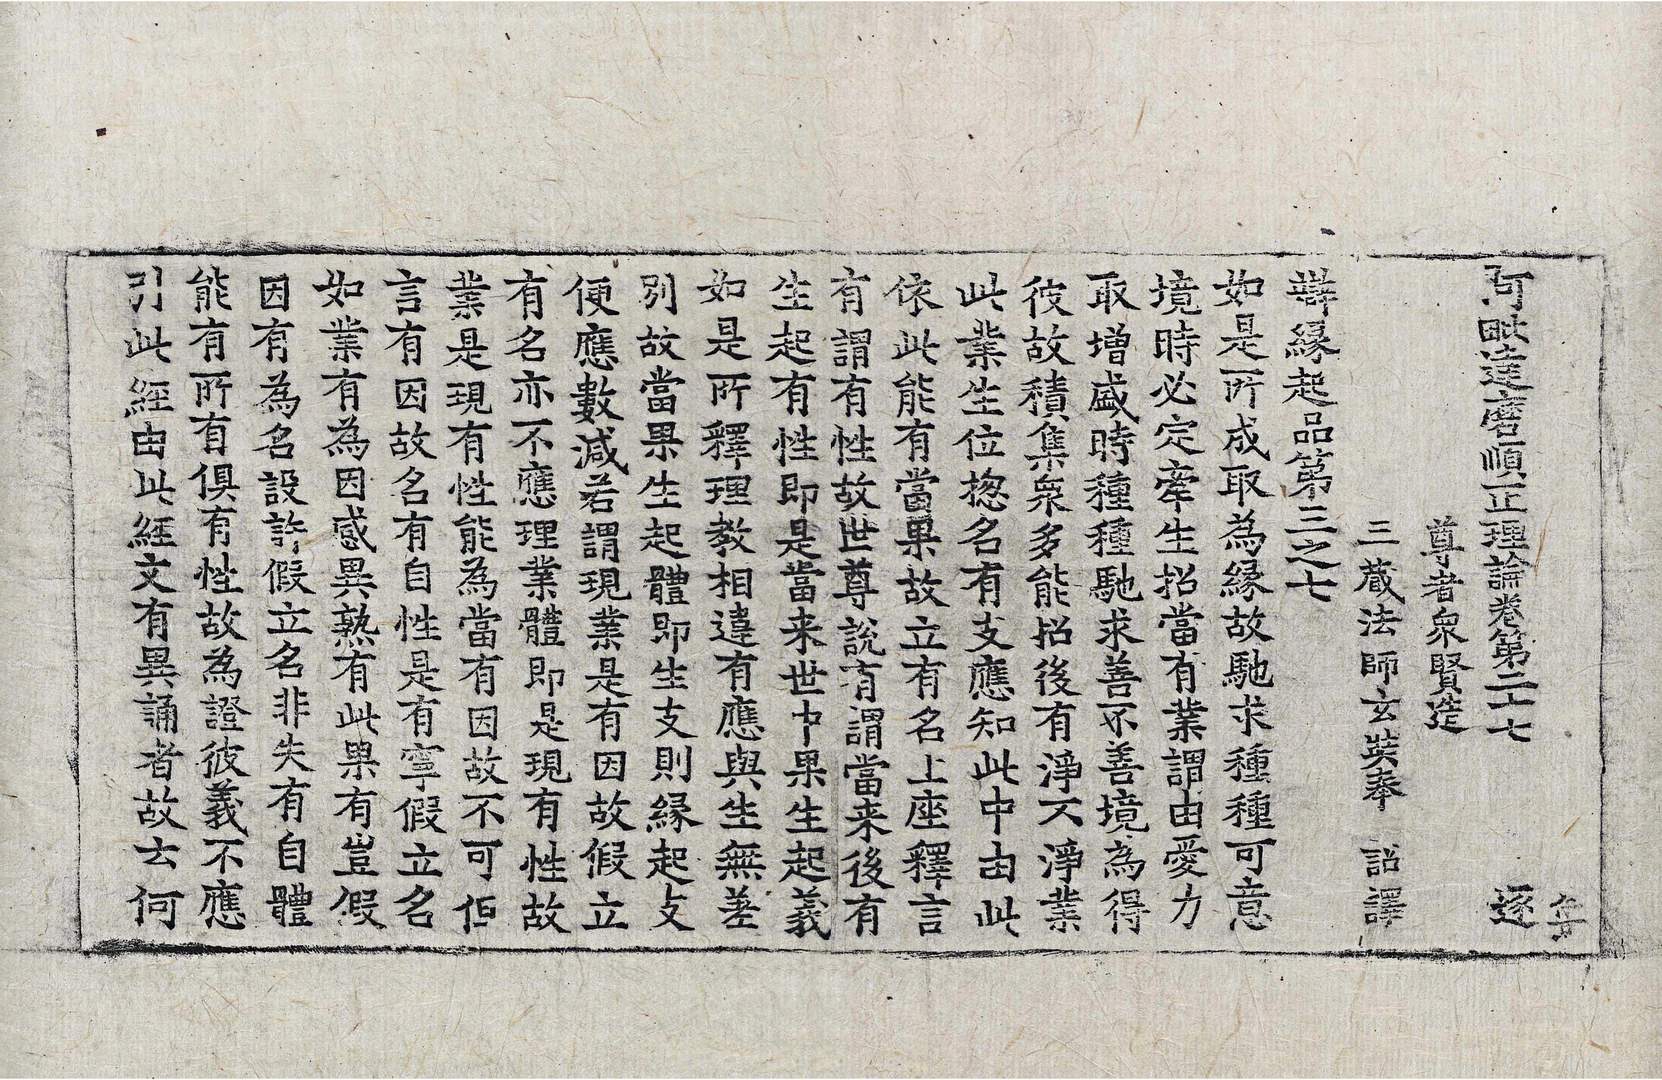 阿毗達磨順正理論卷第二十七 逐
尊者衆賢造
三藏法師玄奘奉 詔譯
辯緣起品第三之七
如是所成取為緣故馳求種種可意
境時必定牽生招當有業謂由愛力
取增盛時種種馳求善不善境為得
彼故積集衆多能招後有淨不淨業
此業生位揔名有支應知此中由此
依此能有當果故立有名上座釋言
有謂有性故世尊說有謂當来後有
生起有性即是當来世中果生起義
如是所釋理教相違有應與生無差
別故當果生起體即生支則緣起支
便應數減若謂現業是有因故假立
有名亦不應理業體即是現有性故
業是現有性能為當有因故不可但
言有因故名有自性是有寧假立名
如業有為因感異熟有此果有豈假
因有為名設許假立名非失有自體
能有所有俱有性故為證彼義不應
引此經由此經文有異誦者故去何